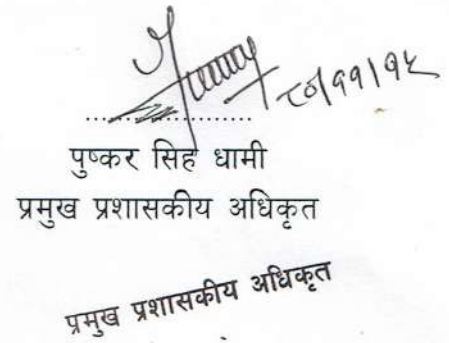 ८०/११/१५
पुष्कर सिह धामी
प्रमुख प्रशासकीय अधिकृत
प्रमुख प्रशासकीय अधिकृत